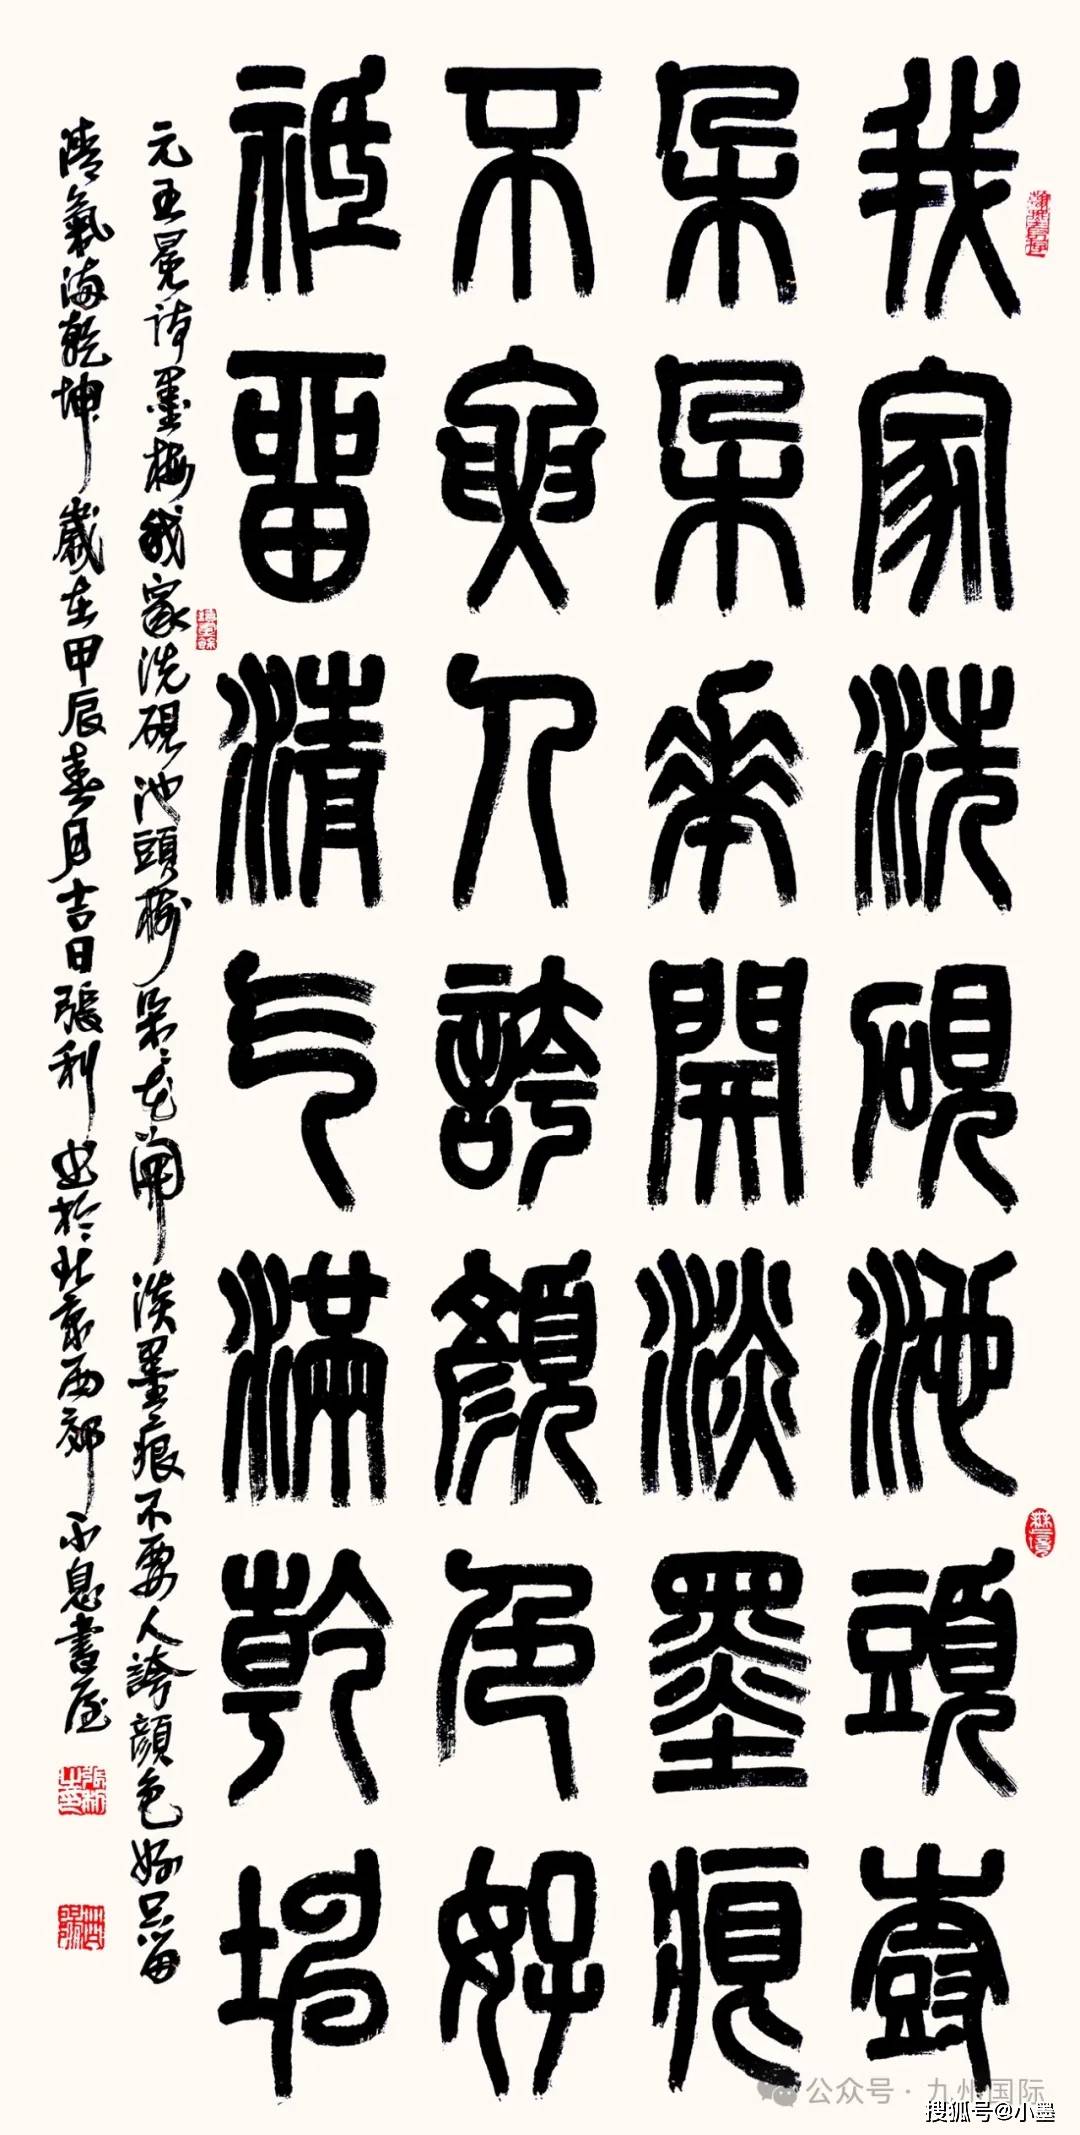 我家洗硯池頭尌
朵朵華開淡墨痕
不要人誇顏色好
祇留清气滿乾坤
元王冕詩墨梅我家洗硯池頭樹朵々花開淡墨痕不要人誇顏色好只留
清氣滿乾坤歲在甲辰春月吉日張利書於北京西郊不息書屋
張利之印
公众号·九州国际
搜狐号@小墨